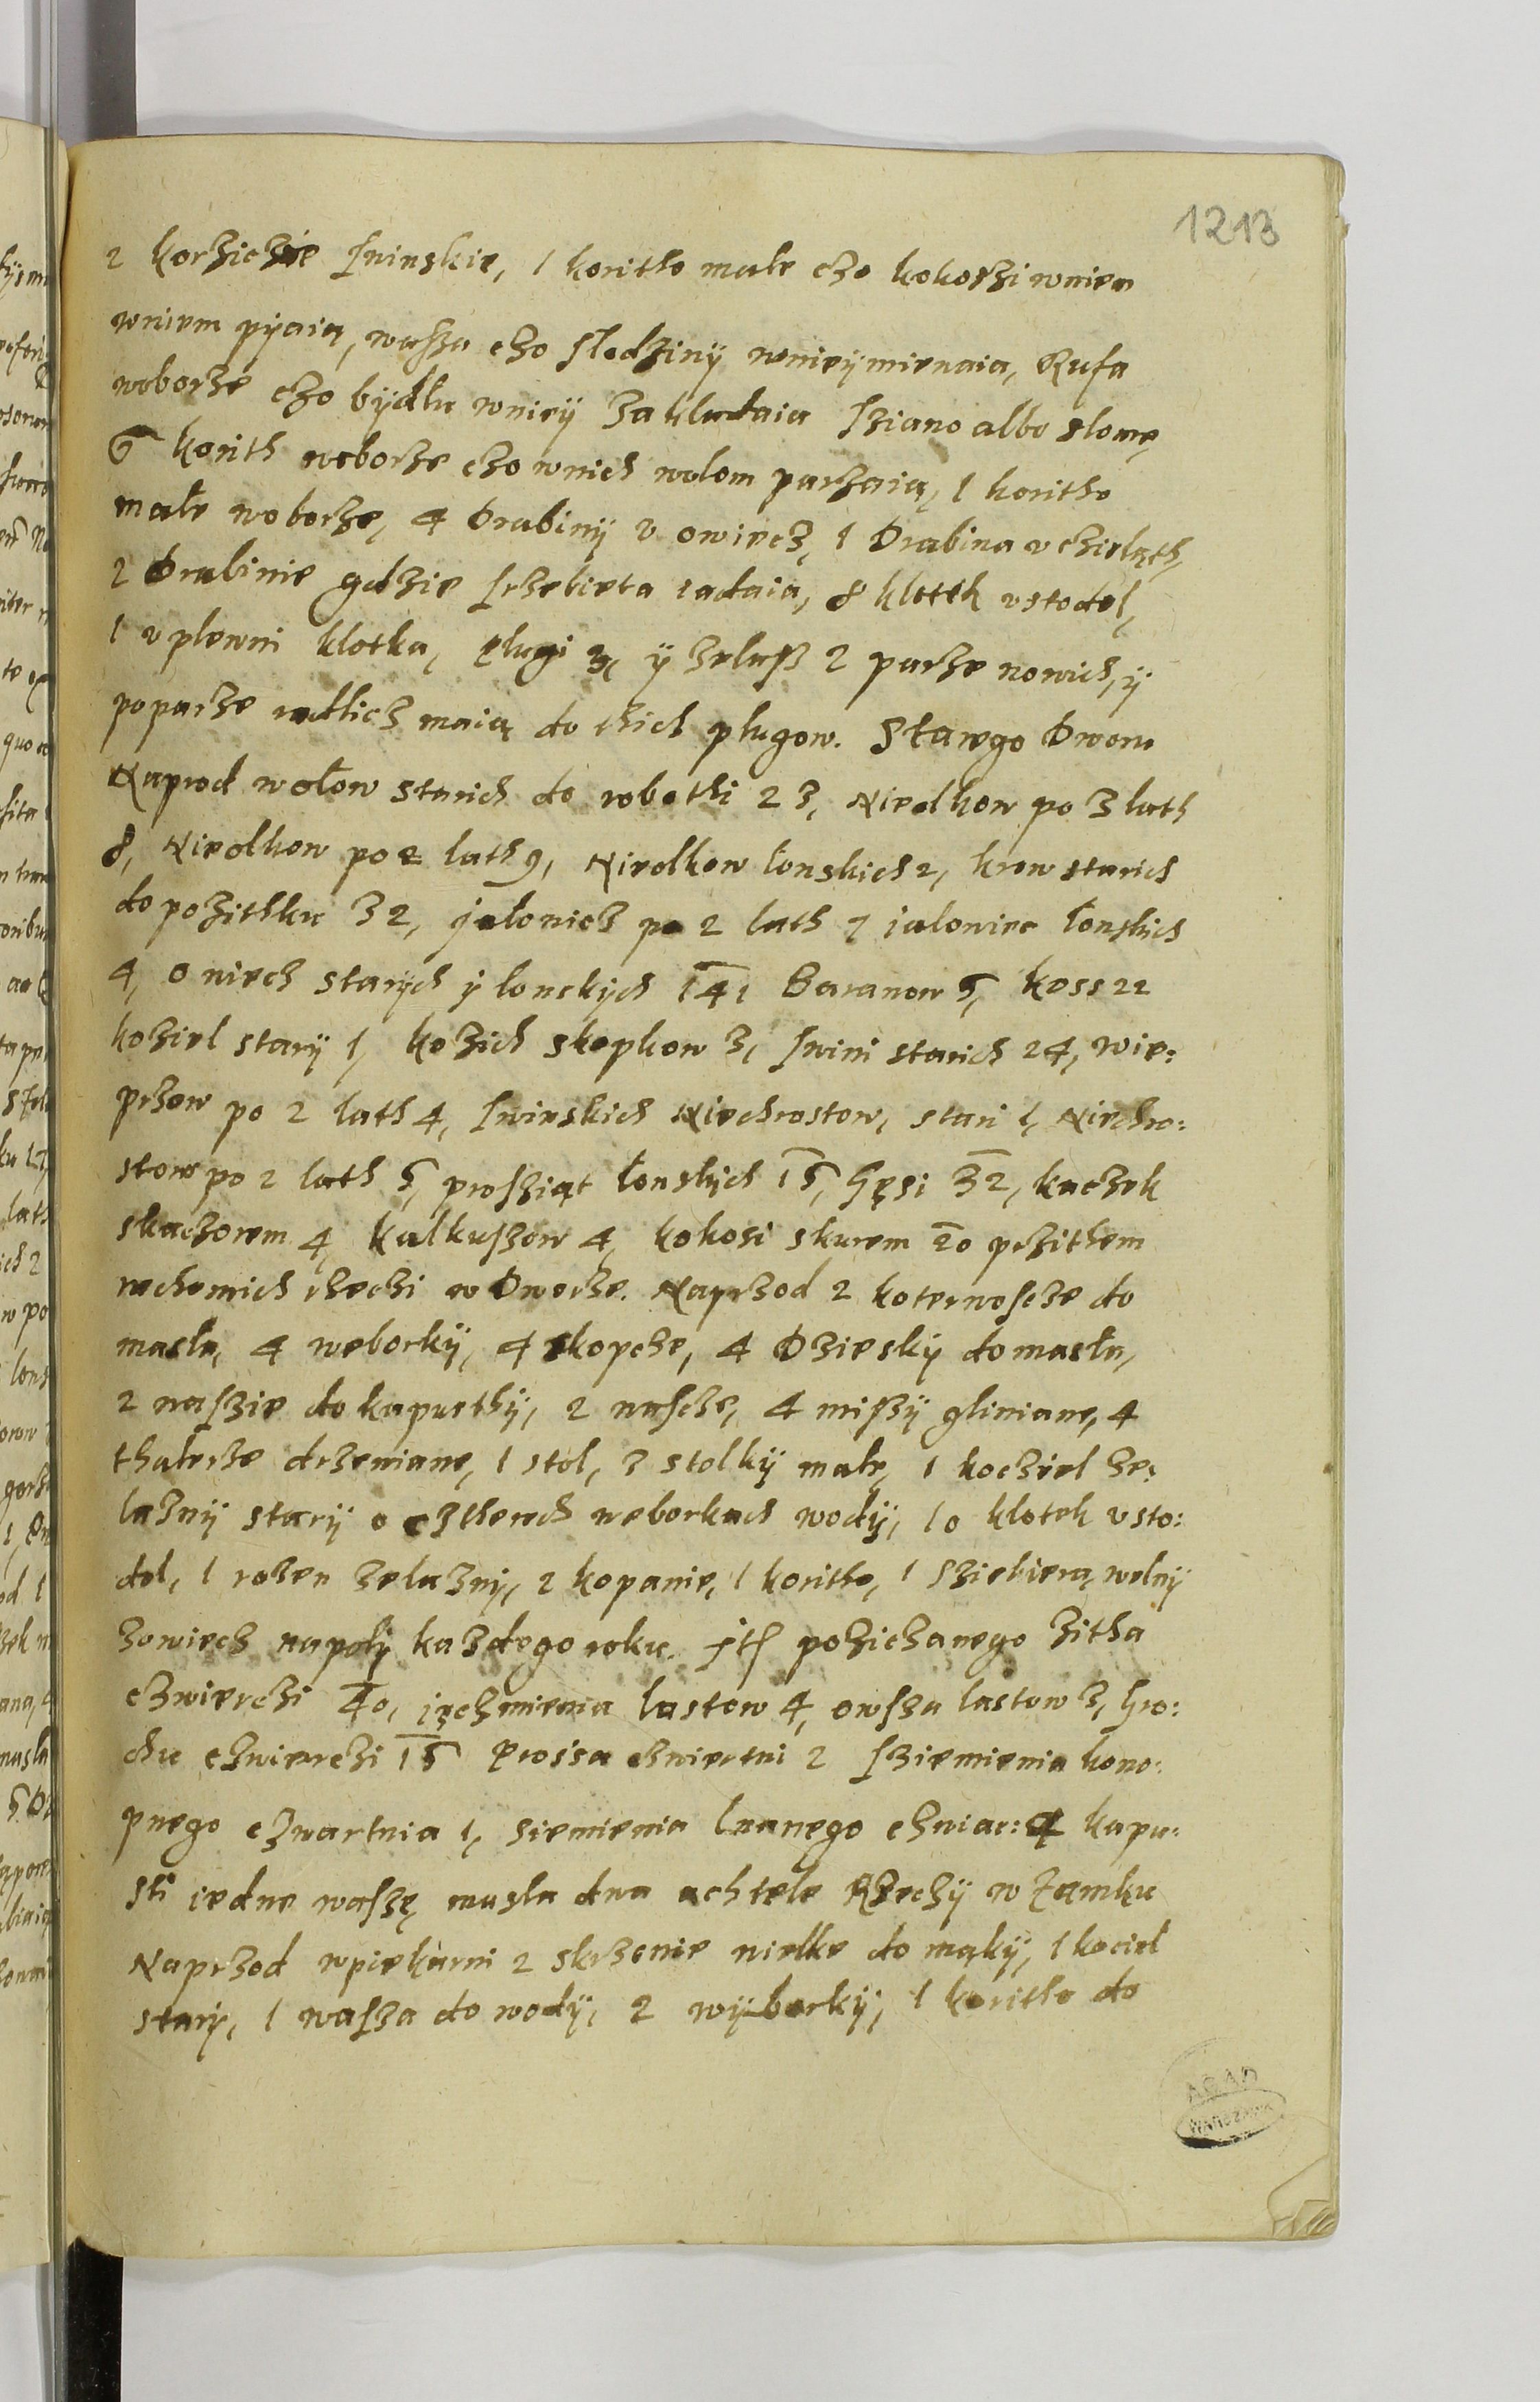 1213
2 korzichie swinskie, 1 koritho małe czo kokoszi wniem
wniem pÿaią, wasza czo słodzinÿ wnieÿ miewaia, Rufa
woborze czo bÿdłu wnieÿ zakladaia sziano albo slomę
6 korith woborze czo wnich wolom parzaią, 1 koritho
małe woborze, 4 Drabinÿ v owiecz, 1 Drabina v czieląth,
2 Drabinie gdzie szrebieta iadaia, 8 klotek vstodol,
1 v plewni klotka, pługi 3, ÿ zelasz 2 parze nowich, ÿ
po parze radlicz maią do thich plugow. Stawgo Dworu
Naprod wołow starich do robothi 23, Nieolkow po 3 lath
8, Nieolkow po 2 lath 9, Nieolkow łonskich 2, krow starich
do pozithku 32, jałowicz po 2 lath 7 iałowiec łonskich
4, owiech starÿch ÿ lonskÿch 141 Baranow 5, koss 22
koziel starÿ 1, kozich skopkow 3, swini starich 24, wie:
przow po 2 lath 4, swinskich Niechrostow, stari 1, Niechro:
stow po 2 lath 5, prosziąt łonskÿch 15, Gęsi 32, kaczek
skaczorem 4, kalkuszow 4, kokosi skurem 20 przithem
rachomich rzeczi w Dworze. Naprzod 2 koternoscze do
masła, 4 weborkÿ, 4 skopcze, 4 Dzieskÿ do masła,
2 naszie do kapusthÿ, 2 nascze, 4 miszÿ gliniane, 4
thalerze drzewiane, 1 stol, 3 stolkÿ małe, 1 kocziel ze:
laznÿ starÿ o cztherech weborkach wodÿ, 10 klotek vsto:
dol, 1 rozen zelaznÿ, 2 kopanie, 1 koritho, 1 sziebierą welnÿ
zowiecz napolÿ kazdego roku. Jth pozichanego zitha
czwierczi 40, ięczmienia lastow 4, owsza lastow 3, Gro:
chu czwierczi 15 Prossa czwiertni 2 sziemienia kono:
pnego czwartnia 1, siemienia lnanego czwiar: 4 kapu:
sti iedne waszę masla dwa achtele Rzechÿ w Zamku
Naprzod wpiekarni 2 skrzenie wielke do mąkÿ, 1 kociel
starÿ, 1 wasza do wodÿ, 2 wÿborkÿ, 1 koritho do
AGAD
WARSZAWA